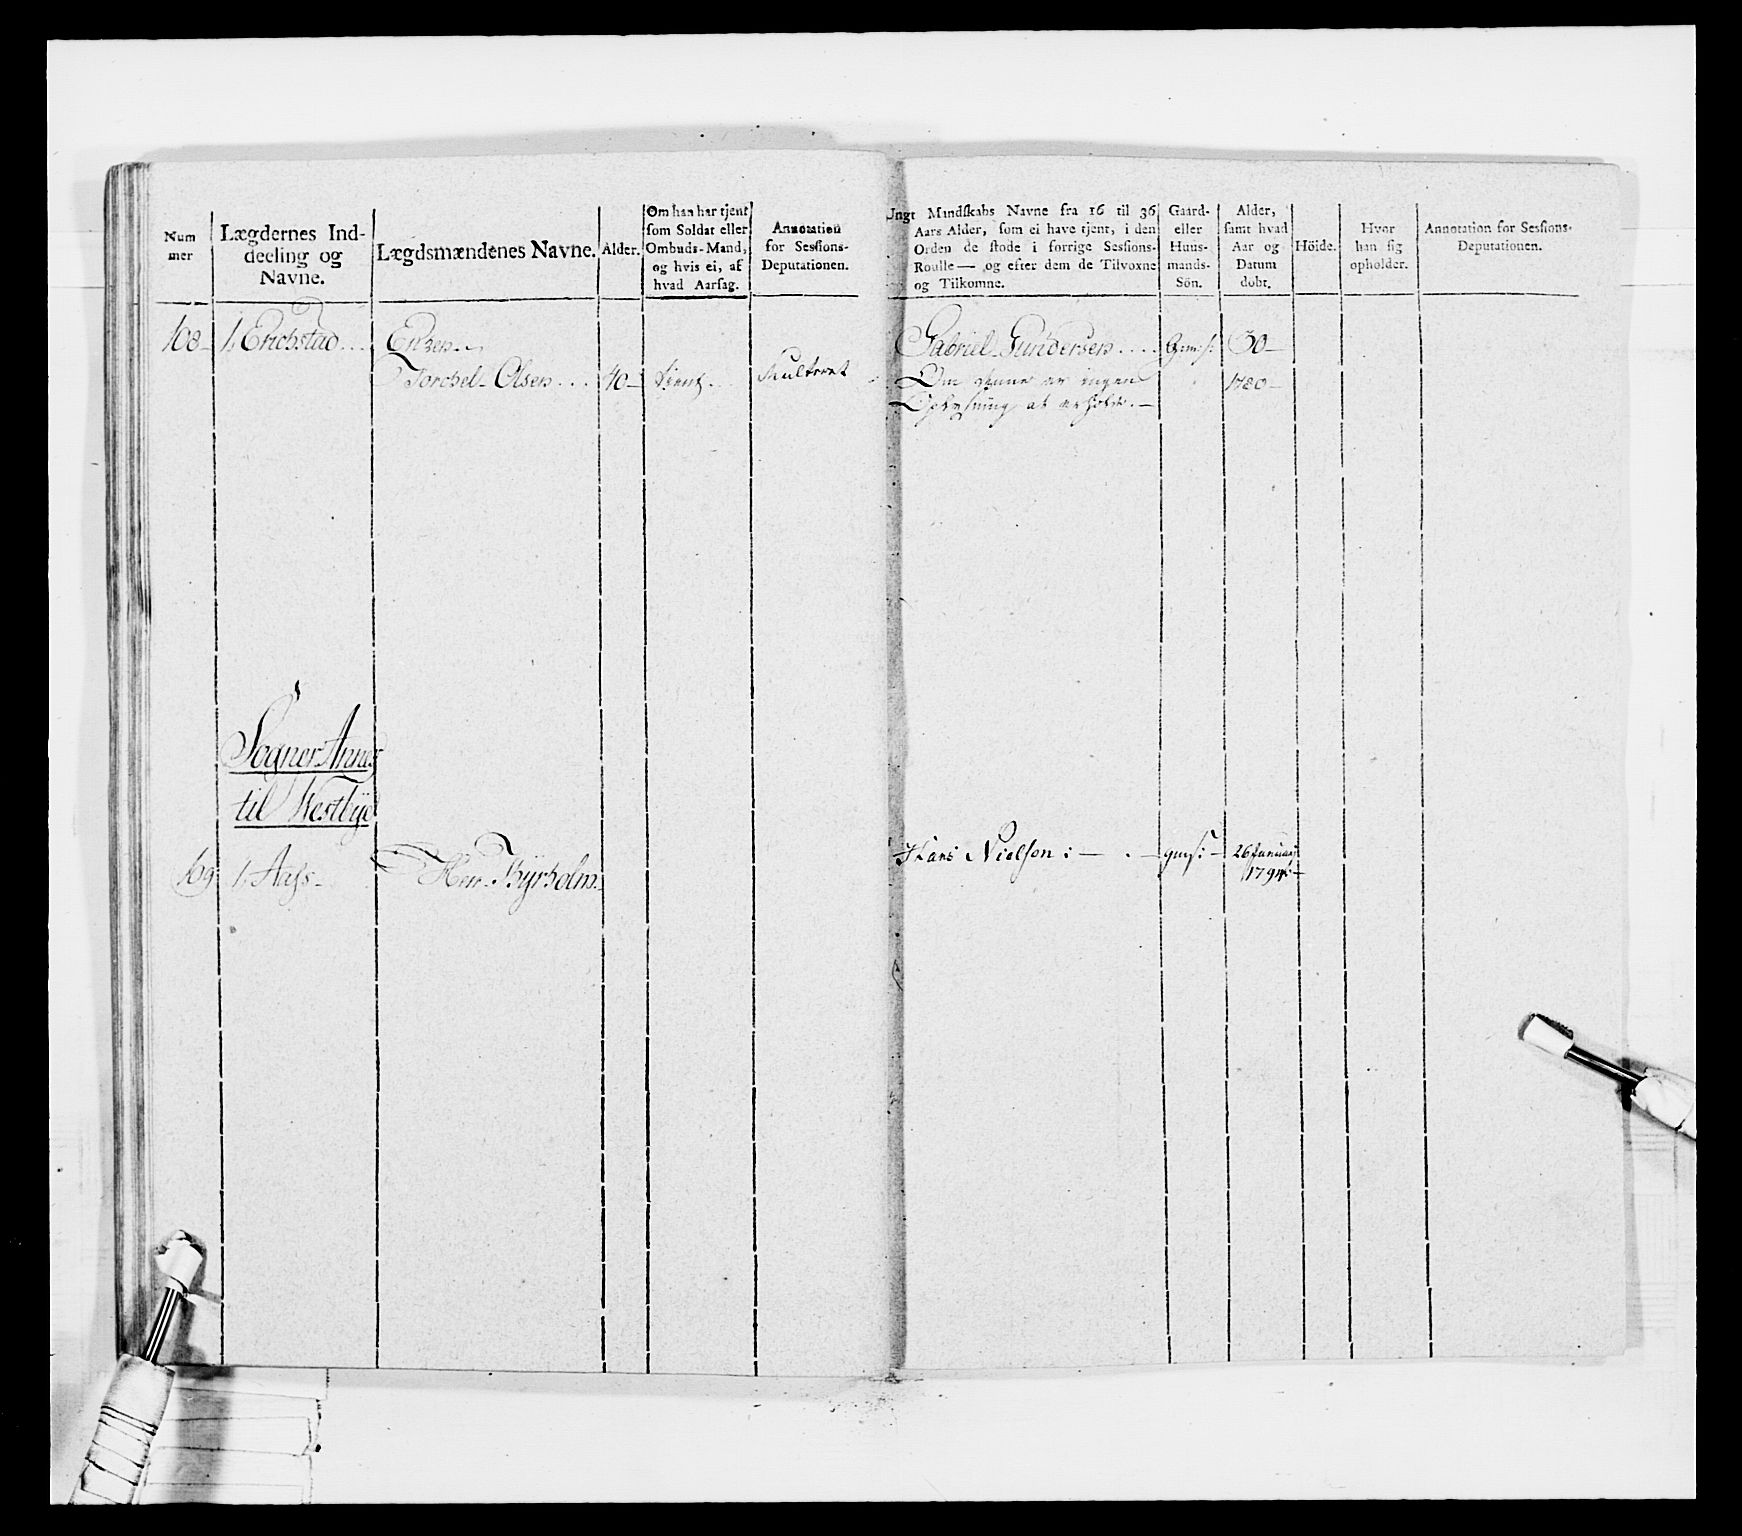 Num
mer
Lægdernes Ind-
deeling og
Navne.
Lægdsmændenes Navne.
Alder.
Om han har tjent
som Soldat eller
Ombuds-Mand,
og hvis ei, af
hvad Aarsag.
Annotation
for Sessions-
Deputationen.
Ungt Mandskabs Navne fra 16 til 36
Aars Alder, som ei have tjent, i den
Orden de stode i forrige Sessions-
Roulle — og efter dem de Tilvoxne
og Tilkomne.
Gaard-
eller
Huus-
mands-
Sön.
Alder,
samt hvad
Aar og
Datum
dobt.
Höide.
Hvor
han sig
opholder.
Annotation for Sessions-
Deputationen.
108 1. Erichstad Enken
Torchel Olsen 40 tient
Gabriel Gundersen Gm:s: 30
Om denne er ingen 1780
Oplysning at erholde.
Sogner Annex
til Westbye
109 1. Aass Herr Thyrholm
Hans Nielsen: gms: 26 Januarj
1794